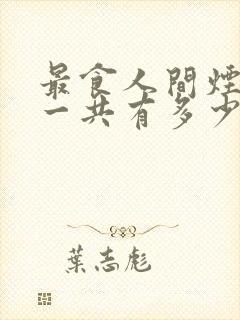 最食人間煙
一共有多少
葉志彪